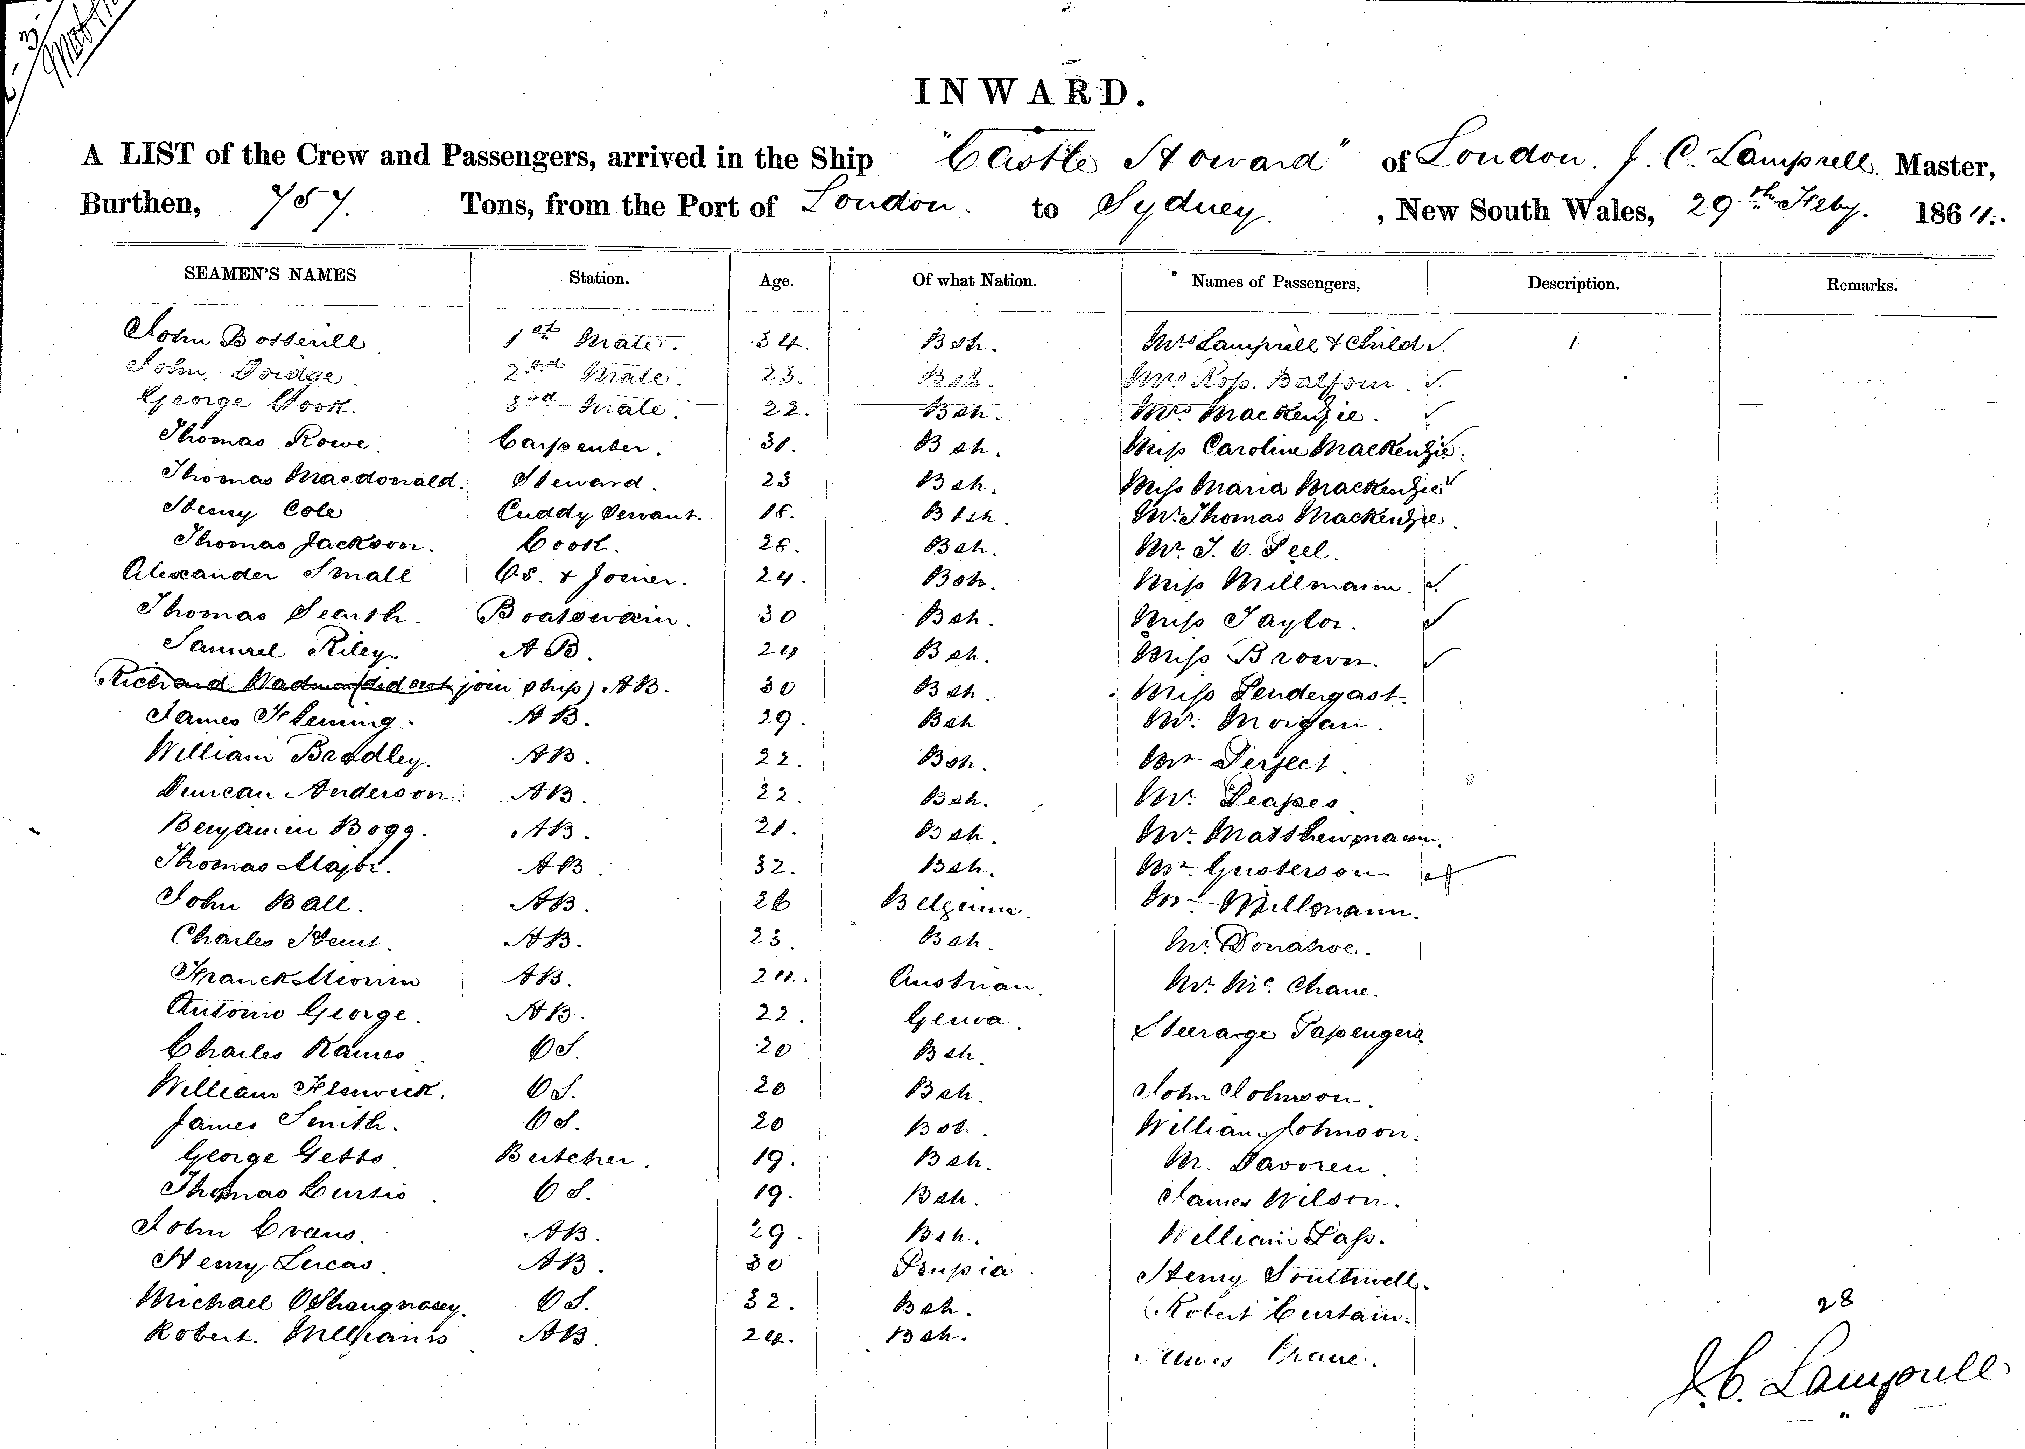 INWARD.
A LIST of the Crew and Passengers, arrived in the Ship "Castle Howard" of London. J. C. Lamprell Master,
Burthen, 757. Tons, from the Port of London. to Sydney. , New South Wales, 29th Feby. 1864.
SEAMEN'S NAMES Station. Age. Of what Nation. Names of Passengers, Description. Remarks.
John Botterill 1st Mate. 34. Bsh. Mrs Lamprell & Child 1
John Doidge 2nd Mate. 23. Bsh. Mrs Ross Balfour
George Cook. 3rd Mate. 22. Bsh. Mrs Mackenzie.
Thomas Rowe. Carpenter. 31. Bsh. Miss Caroline Mackenzie.
Thomas Macdonald. Steward. 23 Bsh. Miss Maria Mackenzie
Henry Cole Cuddy Servant. 18. Btsh. Mr. Thomas Mackenzie.
Thomas Jackson. Cook. 28. Bsh. Mr. Peel.
Alexander Small OS. & Joiner. 24. Bsh. Miss Millmann.
Thomas Boatswain. 30 Bsh. Miss Taylor.
Samuel Riley. AB. 24 Bsh. Miss Brown.
Richard (did not join ship) AB. 30 Bsh. Miss Pendergast.
James Fleming. AB. 29. Bsh Mr. Morgan.
William Bradley. AB. 22. Bsh. Mr Perfect.
Duncan Anderson. AB. 22. Bsh. Mr.
Benjamin Bogg. AB. 21. Bsh. Mr. Matthewmann.
Thomas Major. AB 32. Bsh. Mr. Gusterson
John Ball. AB. 26 Belgium. Mr Millmann.
Charles AB. 23. Bsh. Mr. Donahoe.
AB. 24. Austrian. Mr. Mc. Chane.
Antonio George. AB. 22. Genoa. Steerage Passengers
Charles Raines OS. 20 Bsh.
William Fenwick. OS. 20 Bsh. John Johnson.
James Smith. OS. 20 Bsh. William Johnson.
George Betts Butcher. 19. Bsh. M. Davoren.
Thomas Curtis OS. 19. Bsh. James Wilson.
John Evans. AB. 29. Bsh. William Pass.
Henry Lucas. AB. 30 Prussia Henry Southwell.
Michael OShaugnasey. OS. 32. Bsh. Robert Curtain.
Robert. Williams AB. 24. Bsh. James Crane.
28
J. C. Lamprell